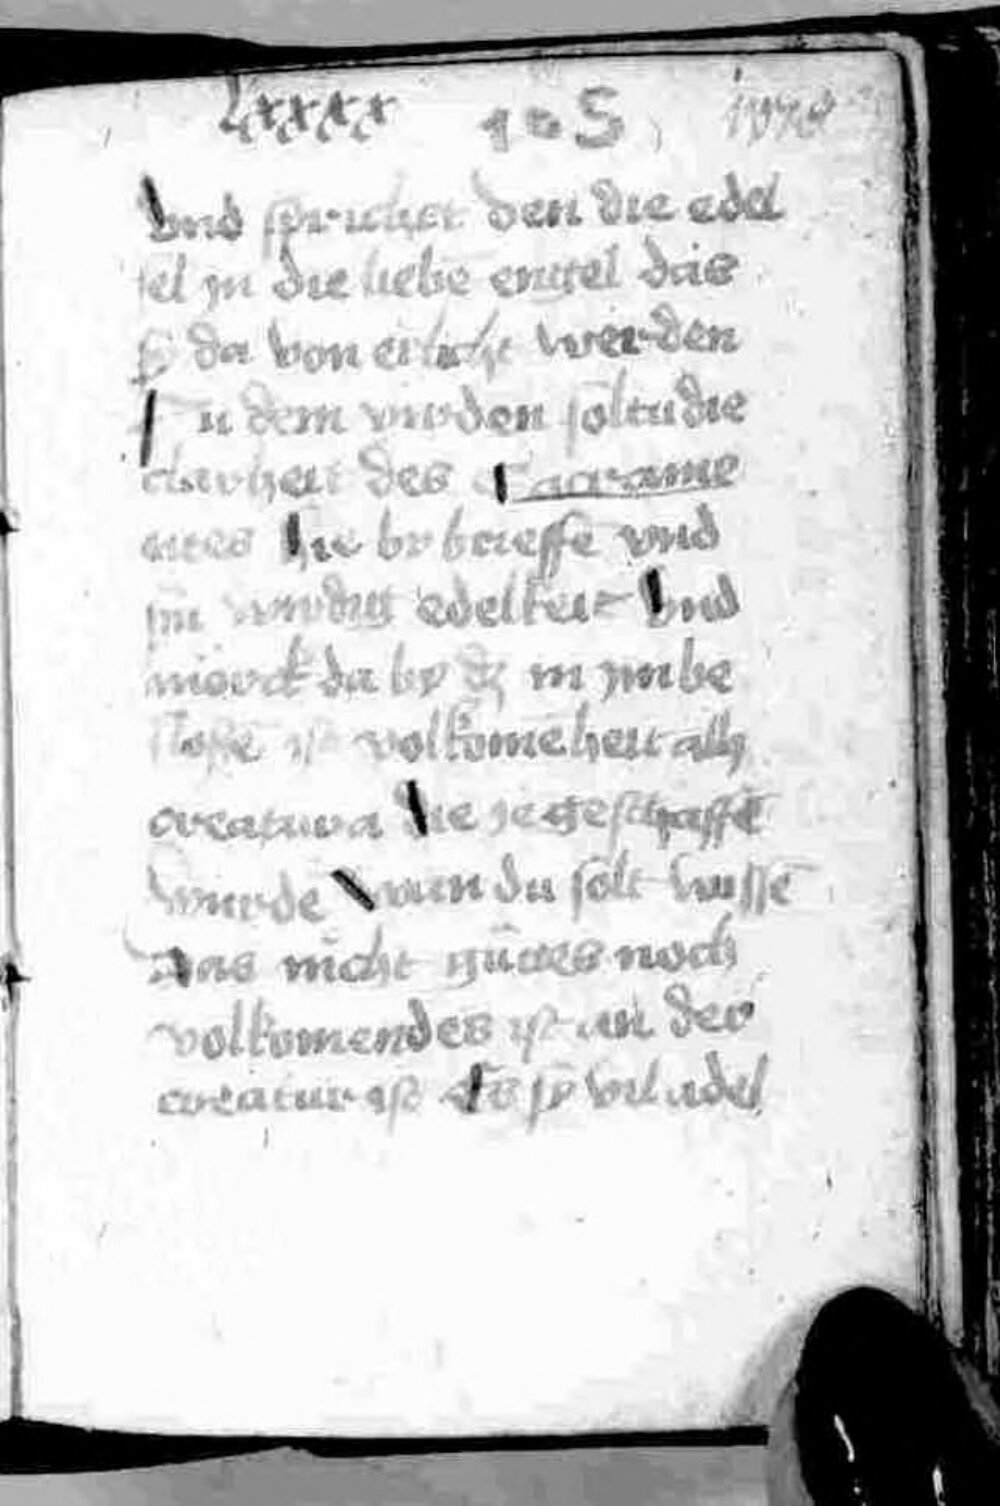 Lxxxx 105
Vnd sprichet den die edel
sel jn die liebē engel das
sy da von erlücht werden
In dem wirden soltu die
clarheit des Sacrame
ntes hie by brieffē vnd
sin edelkeit Vnd
mörck da by dz in jm be
ist volkomēheit allr
creatura die je geschaffē
wurdē wan du solt wissē
Das nicht gůttes noch
volkomendes ist an der
creatur ist Es sy vil adel